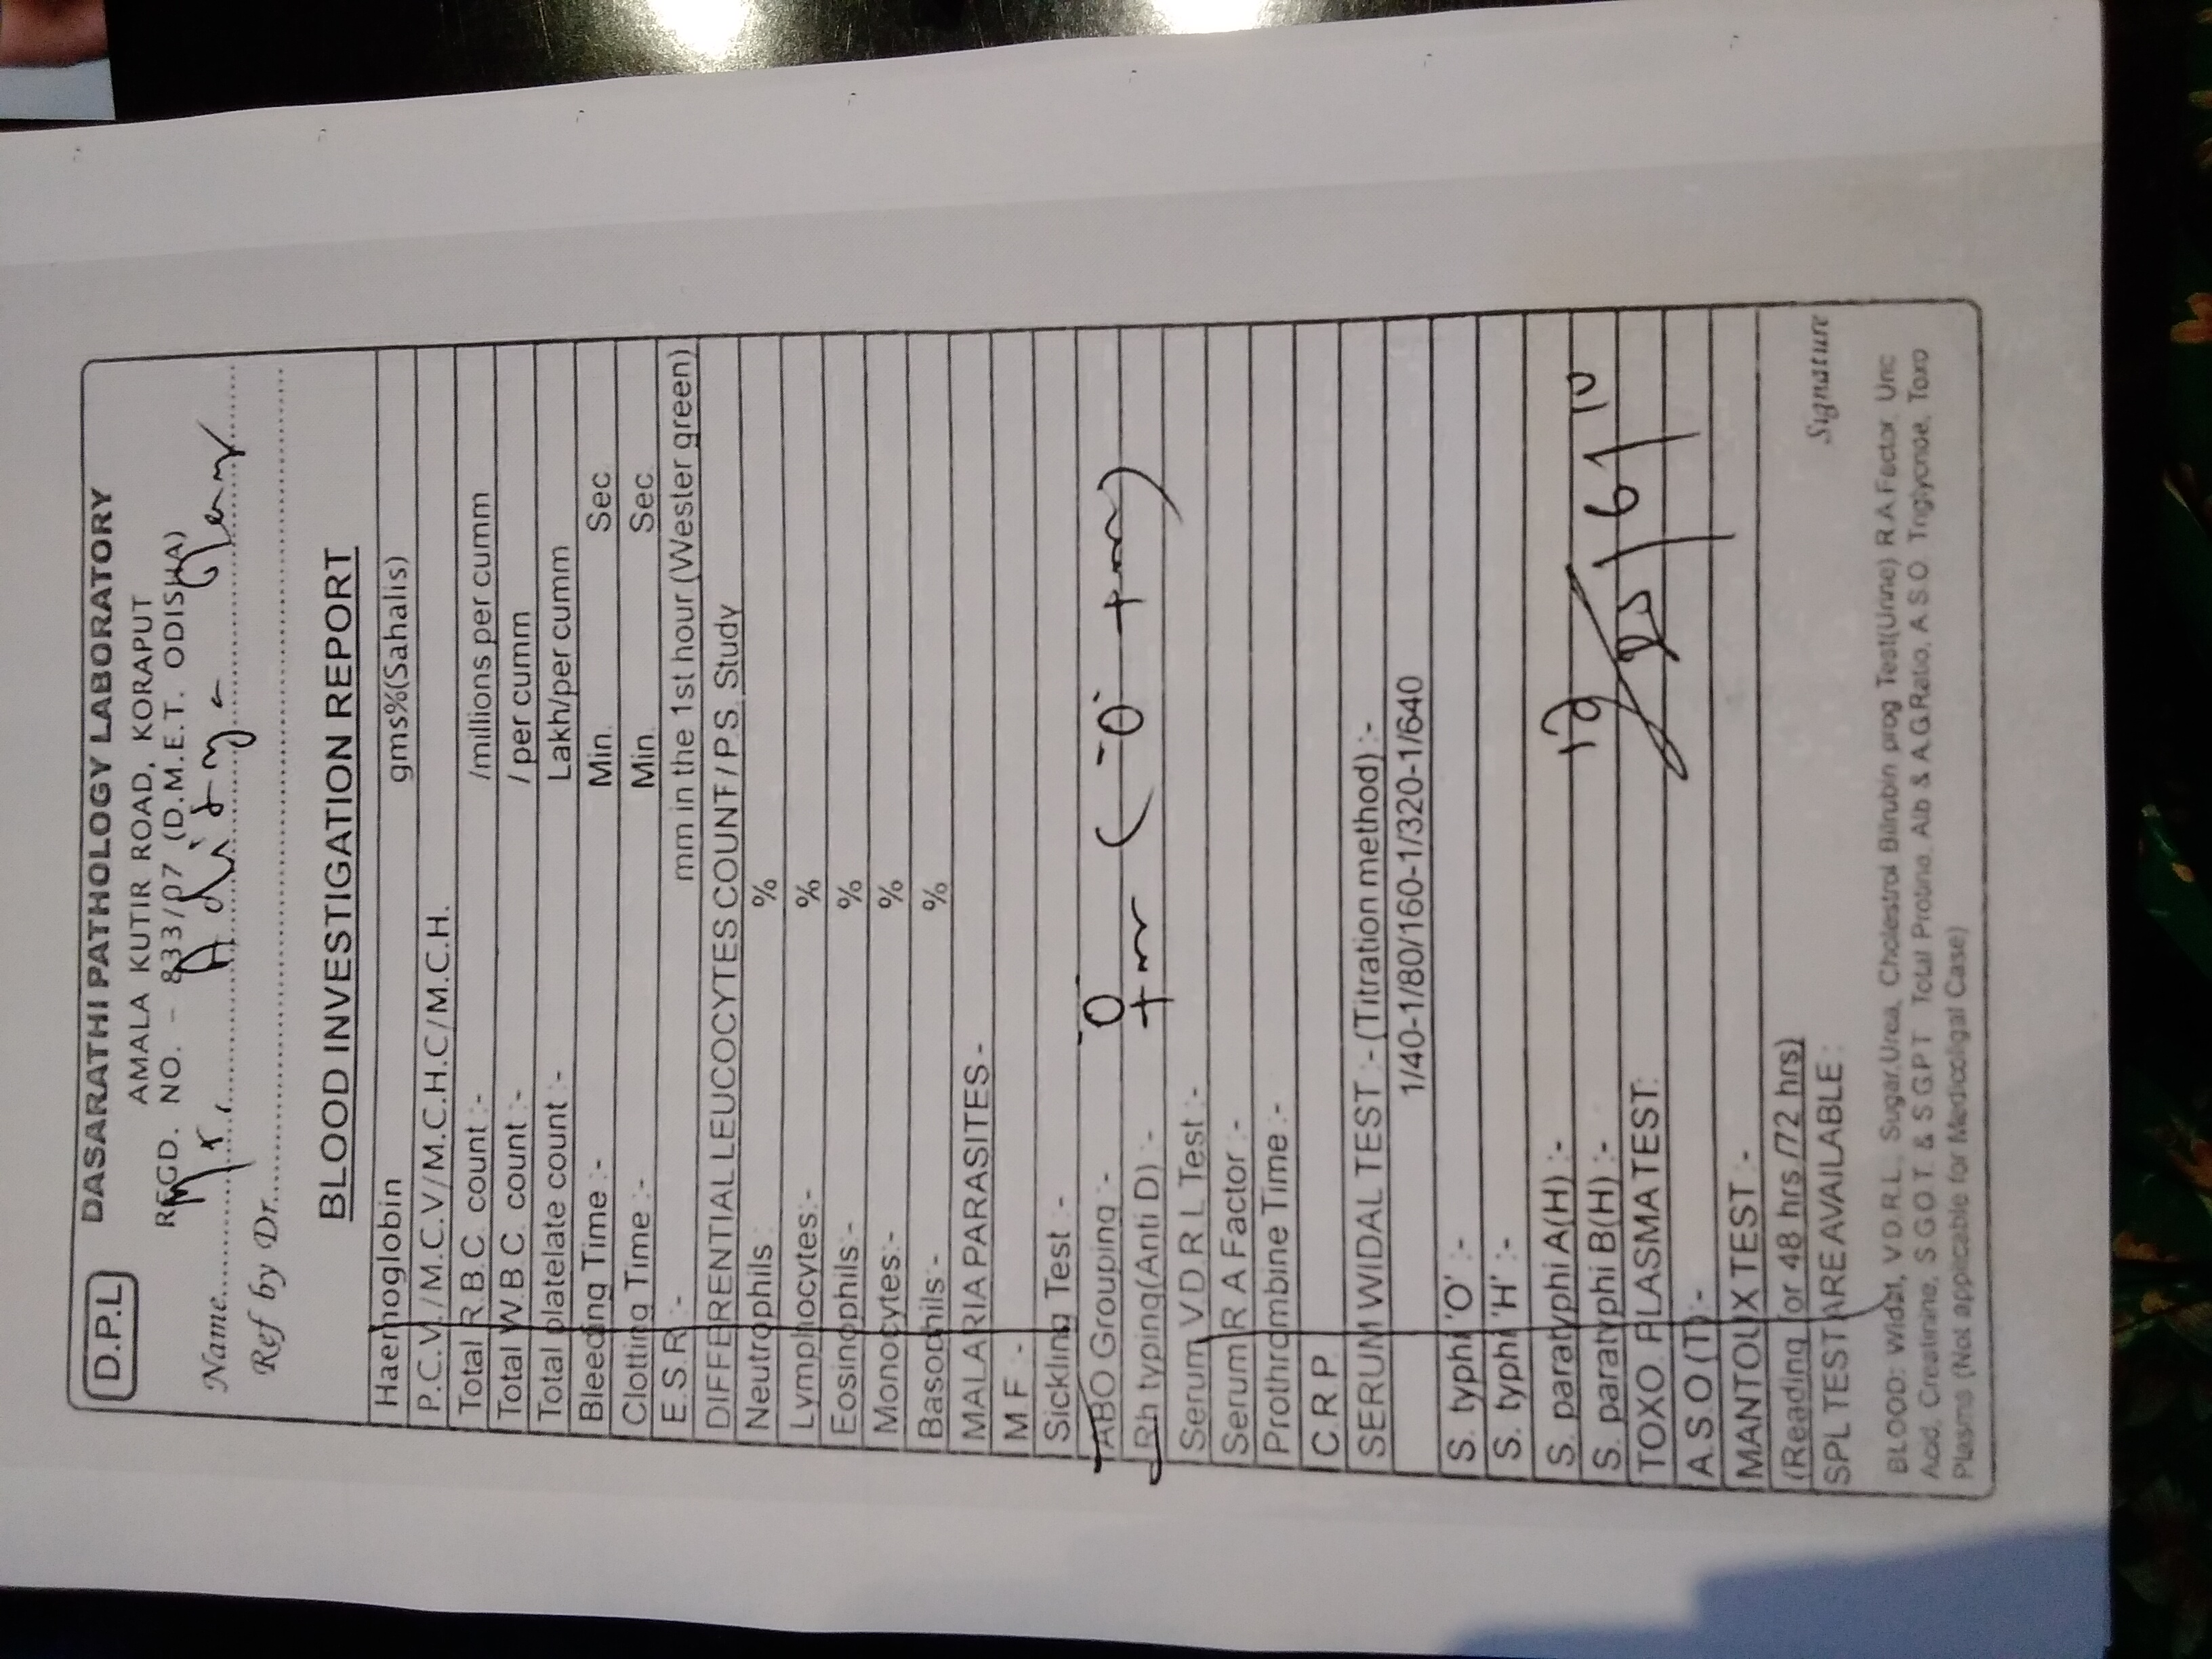 D.P.L DASARATHI PATHOLOGY LABORATORY
AMALA KUTIR ROAD, KORAPUT
REGD. NO. - 833/07 (D.M.E.T. ODISHA)
Name
Ref by Dr
BLOOD INVESTIGATION REPORT
Haemoglobin gms%(Sahalis)
P.C.V./M.C.V/M.C.H.C/M.C.H.
Total R.B.C. count :- /millions per cumm
Total W.B.C. count :- / per cumm
Total platelate count :- Lakh/per cumm
Bleeding Time :- Min. Sec
Clotting Time :- Min. Sec
E.S.R :- mm in the 1st hour (Wester green)
DIFFERENTIAL LEUCOCYTES COUNT / P.S. Study
Neutrophils : %
Lymphocytes:- %
Eosinophils :- %
Monocytes:- %
Basophils:- %
MALARIA PARASITES -
M F :-
Sickling Test :-
ABO Grouping :- "O"
Rh typing(Anti D) :-
Serum V D R L Test :-
Serum R A Factor :-
Prothrombine Time :-
C R P
SERUM WIDAL TEST :- (Titration method) :-
1/40-1/80/160-1/320-1/640
S. typhi 'O' :-
S. typhi 'H' :-
S. paratyphi A(H) :-
S. paratyphi B(H) :-
TOXO. PLASMA TEST:
A.S.O (T) :-
MANTOUX TEST :-
(Reading for 48 hrs /72 hrs)
SPL TEST ARE AVAILABLE : Signature
BLOOD: Widal, V.D.R.L., Sugar, Urea, Cholestrol Bilrubin prog Test(Urine) R.A Factor, Uric
Acid, Creatinine, S.G.O.T. & S.G.P.T Total Protine, Alb & A.G.Ratio, A.S.O. Triglycride, Toxo
Plasma (Not applicable for Medicoligal Case)